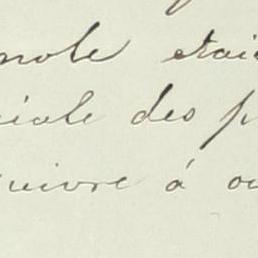 nole etai
iale des p
uivre à ou